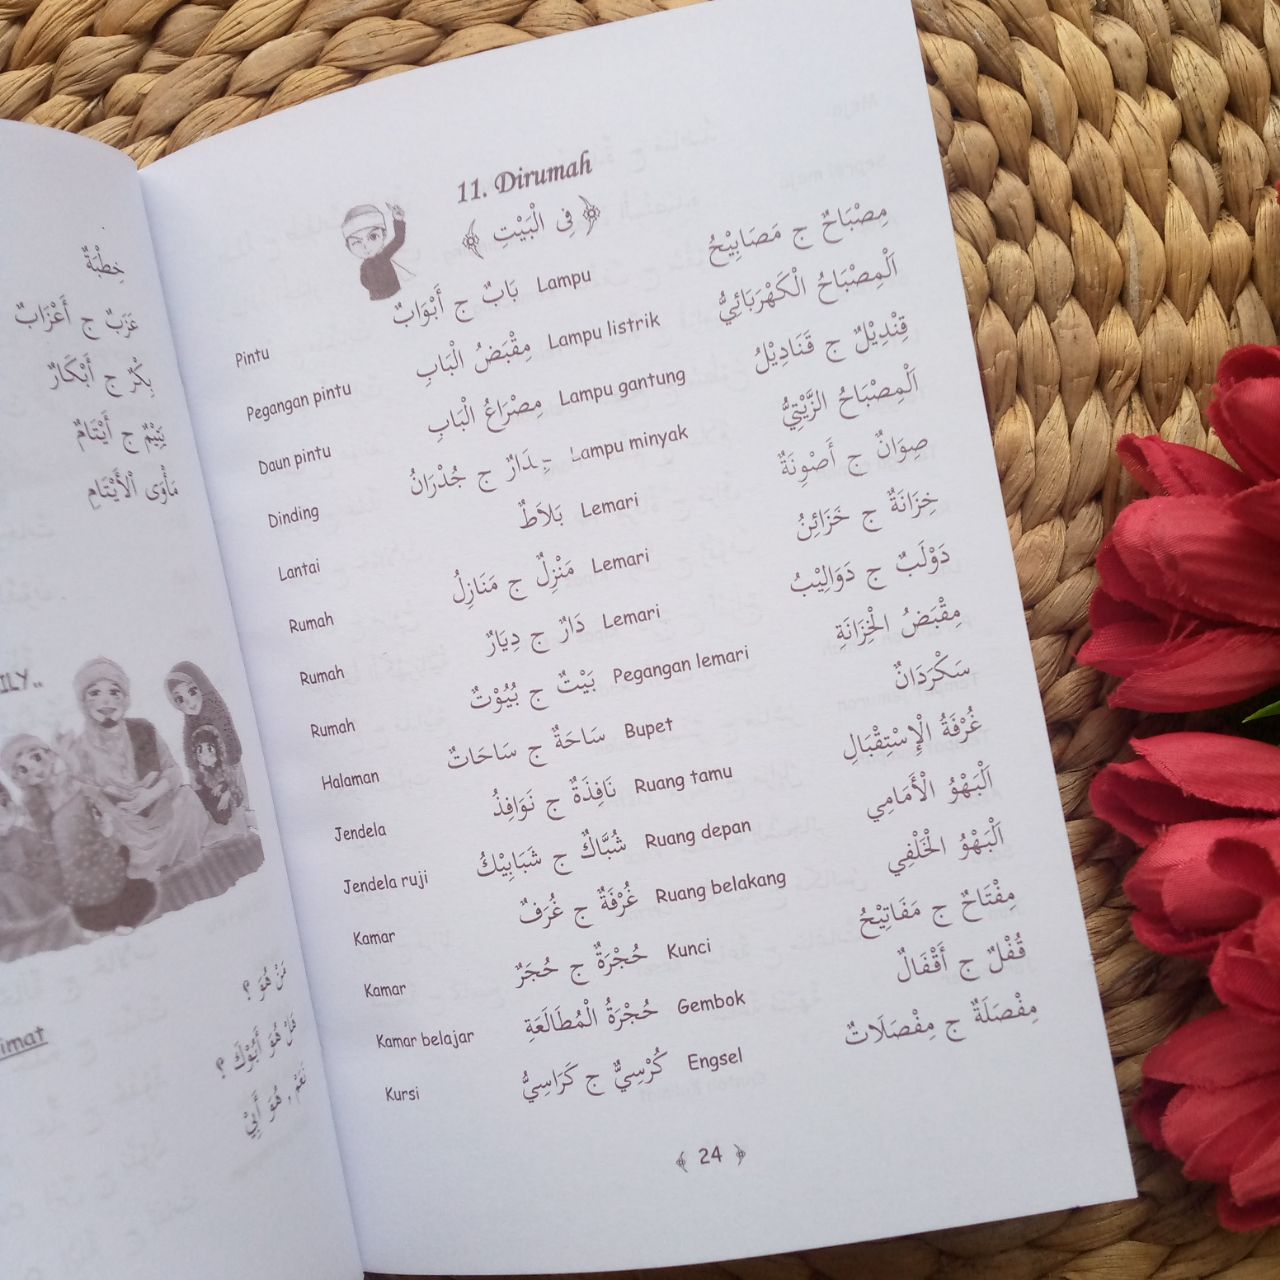 خِطْبَةٌ
عَزَبٌ ج أَعْزَابٌ
بِكْرٌ ج أَبْكَارٌ
يَتِيْمٌ ج أَيْتَامٌ
مَأْوَى الْأَيْتَامِ
ILY..
مَنْ هُوَ ؟
imat
هَلْ هُوَ أَبُوْكَ ؟
نَعَمْ، هُوَ أَبِيْ
11. Dirumah
فِى الْبَيْتِ
Pintu بَابٌ ج أَبْوَابٌ
Pegangan pintu مِقْبَضُ الْبَابِ
Daun pintu مِصْرَاعُ الْبَابِ
Dinding جِدَارٌ ج جُدْرَانُ
Lantai بَلاَطٌ
Rumah مَنْزِلٌ ج مَنَازِلُ
Rumah دَارٌ ج دِيَارٌ
Rumah بَيْتٌ ج بُيُوْتٌ
Halaman سَاحَةٌ ج سَاحَاتٌ
Jendela نَافِذَةٌ ج نَوَافِذُ
Jendela ruji شُبَّاكٌ ج شَبَابِيْكُ
Kamar غُرْفَةٌ ج غُرَفٌ
Kamar حُجْرَةٌ ج حُجَرٌ
Kamar belajar حُجْرَةُ الْمُطَالَعَةِ
Kursi كُرْسِيٌّ ج كَرَاسِيُّ
Lampu مِصْبَاحٌ ج مَصَابِيْحُ
Lampu listrik اَلْمِصْبَاحُ الْكَهْرَبَائِيُّ
Lampu gantung قِنْدِيْلٌ ج قَنَادِيْلُ
Lampu minyak اَلْمِصْبَاحُ الزَّيْتِيُّ
Lemari صِوَانٌ ج أَصْوِنَةٌ
Lemari خِزَانَةٌ ج خَزَائِنُ
Lemari دَوْلَبٌ ج دَوَالِيْبُ
Pegangan lemari مِقْبَضُ الْخِزَانَةِ
Bupet سَكْرَدَانٌ
Ruang tamu غُرْفَةُ الْإِسْتِقْبَالِ
Ruang depan اَلْبَهْوُ الْأَمَامِي
Ruang belakang اَلْبَهْوُ الْخَلْفِي
Kunci مِفْتَاحٌ ج مَفَاتِيْحُ
Gembok قُفْلٌ ج أَقْفَالٌ
Engsel مِفْصَلَةٌ ج مِفْصَلَاتٌ
24